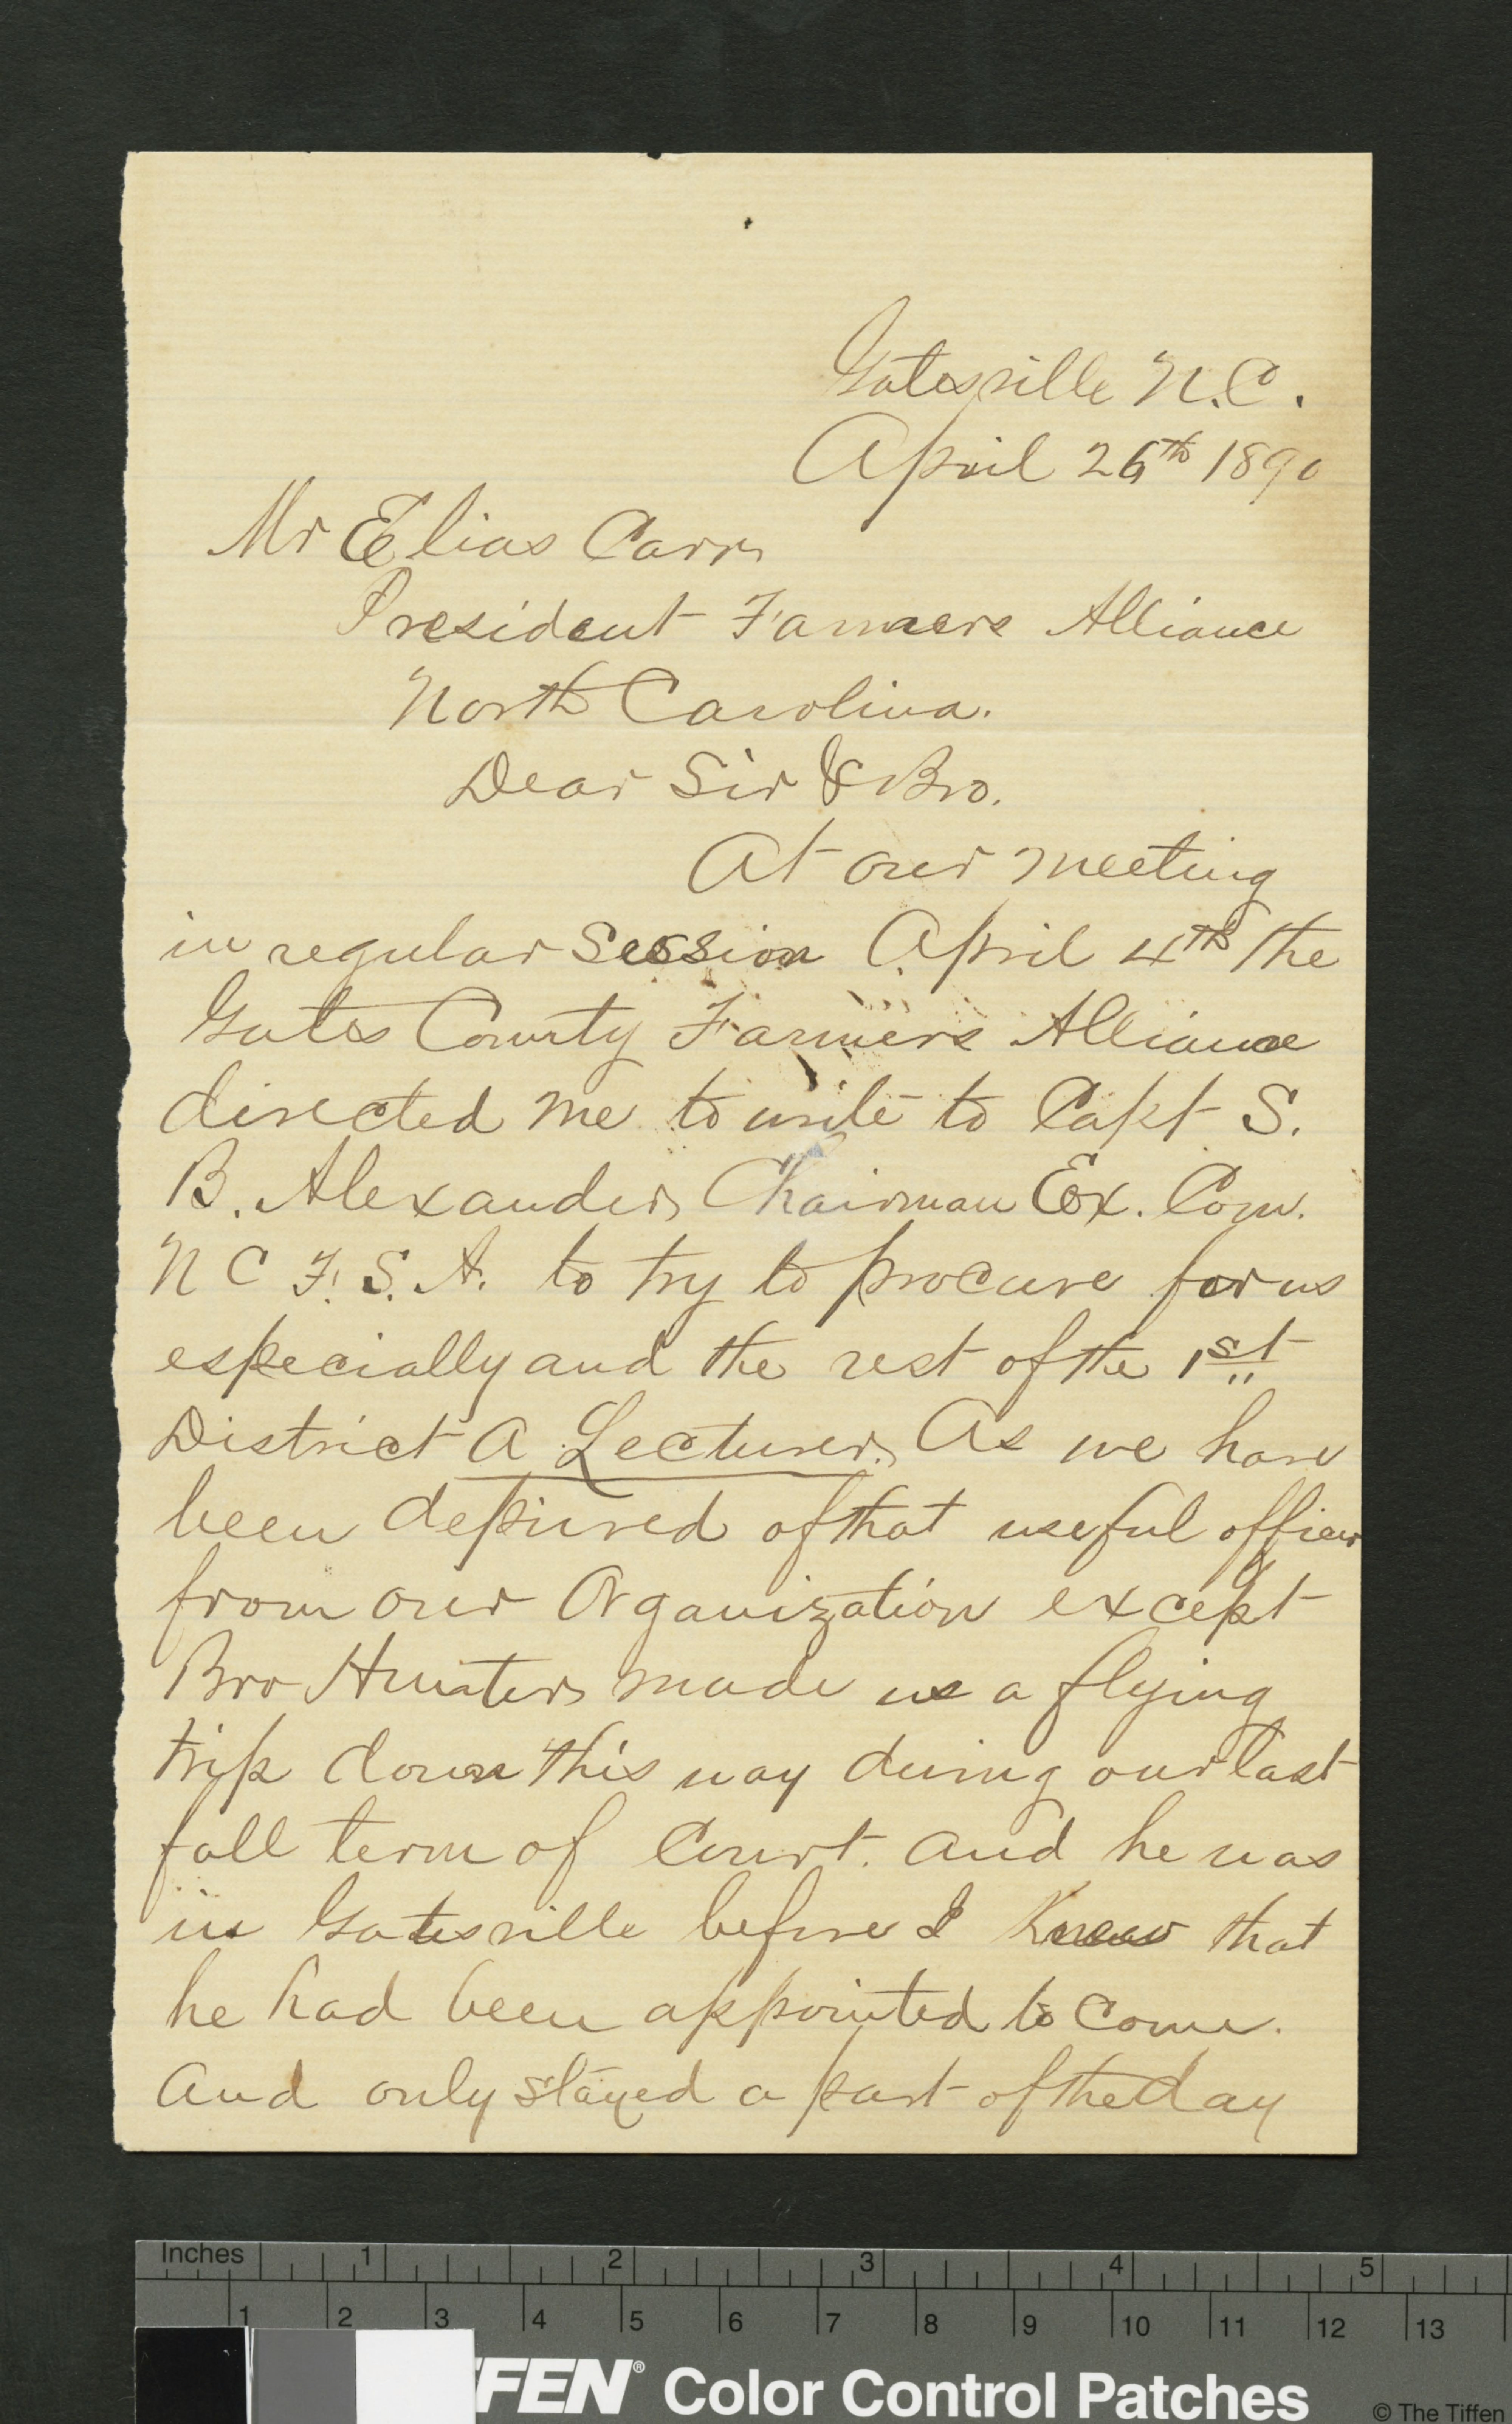 Gatesville N.C.
April 26th 1890
Mr Elias Carr
President Farmers Alliance
North Carolina.
Dear Sir & Bro.
At our meeting
in regular Session April 4th the
Gates County Farmers Alliance
directed me to write to Capt S.
B. Alexander Chairman Ex. Com.
N C F. S. A. to try to procure for us
especially and the rest of the 1st
District A Lecturer. As we have
been deprived of that useful officer
from our Organization except
Bro Hunter made us a flying
trip down this way during our last
fall term of Court. and he was
in Gatesville before I Knew that
he had been appointed to Come.
And only stayed a part of the day
Inches 1 2 3 4 5
1 2 3 4 5 6 7 8 9 10 11 12 13
FFEN® Color Control Patches
© The Tiffen